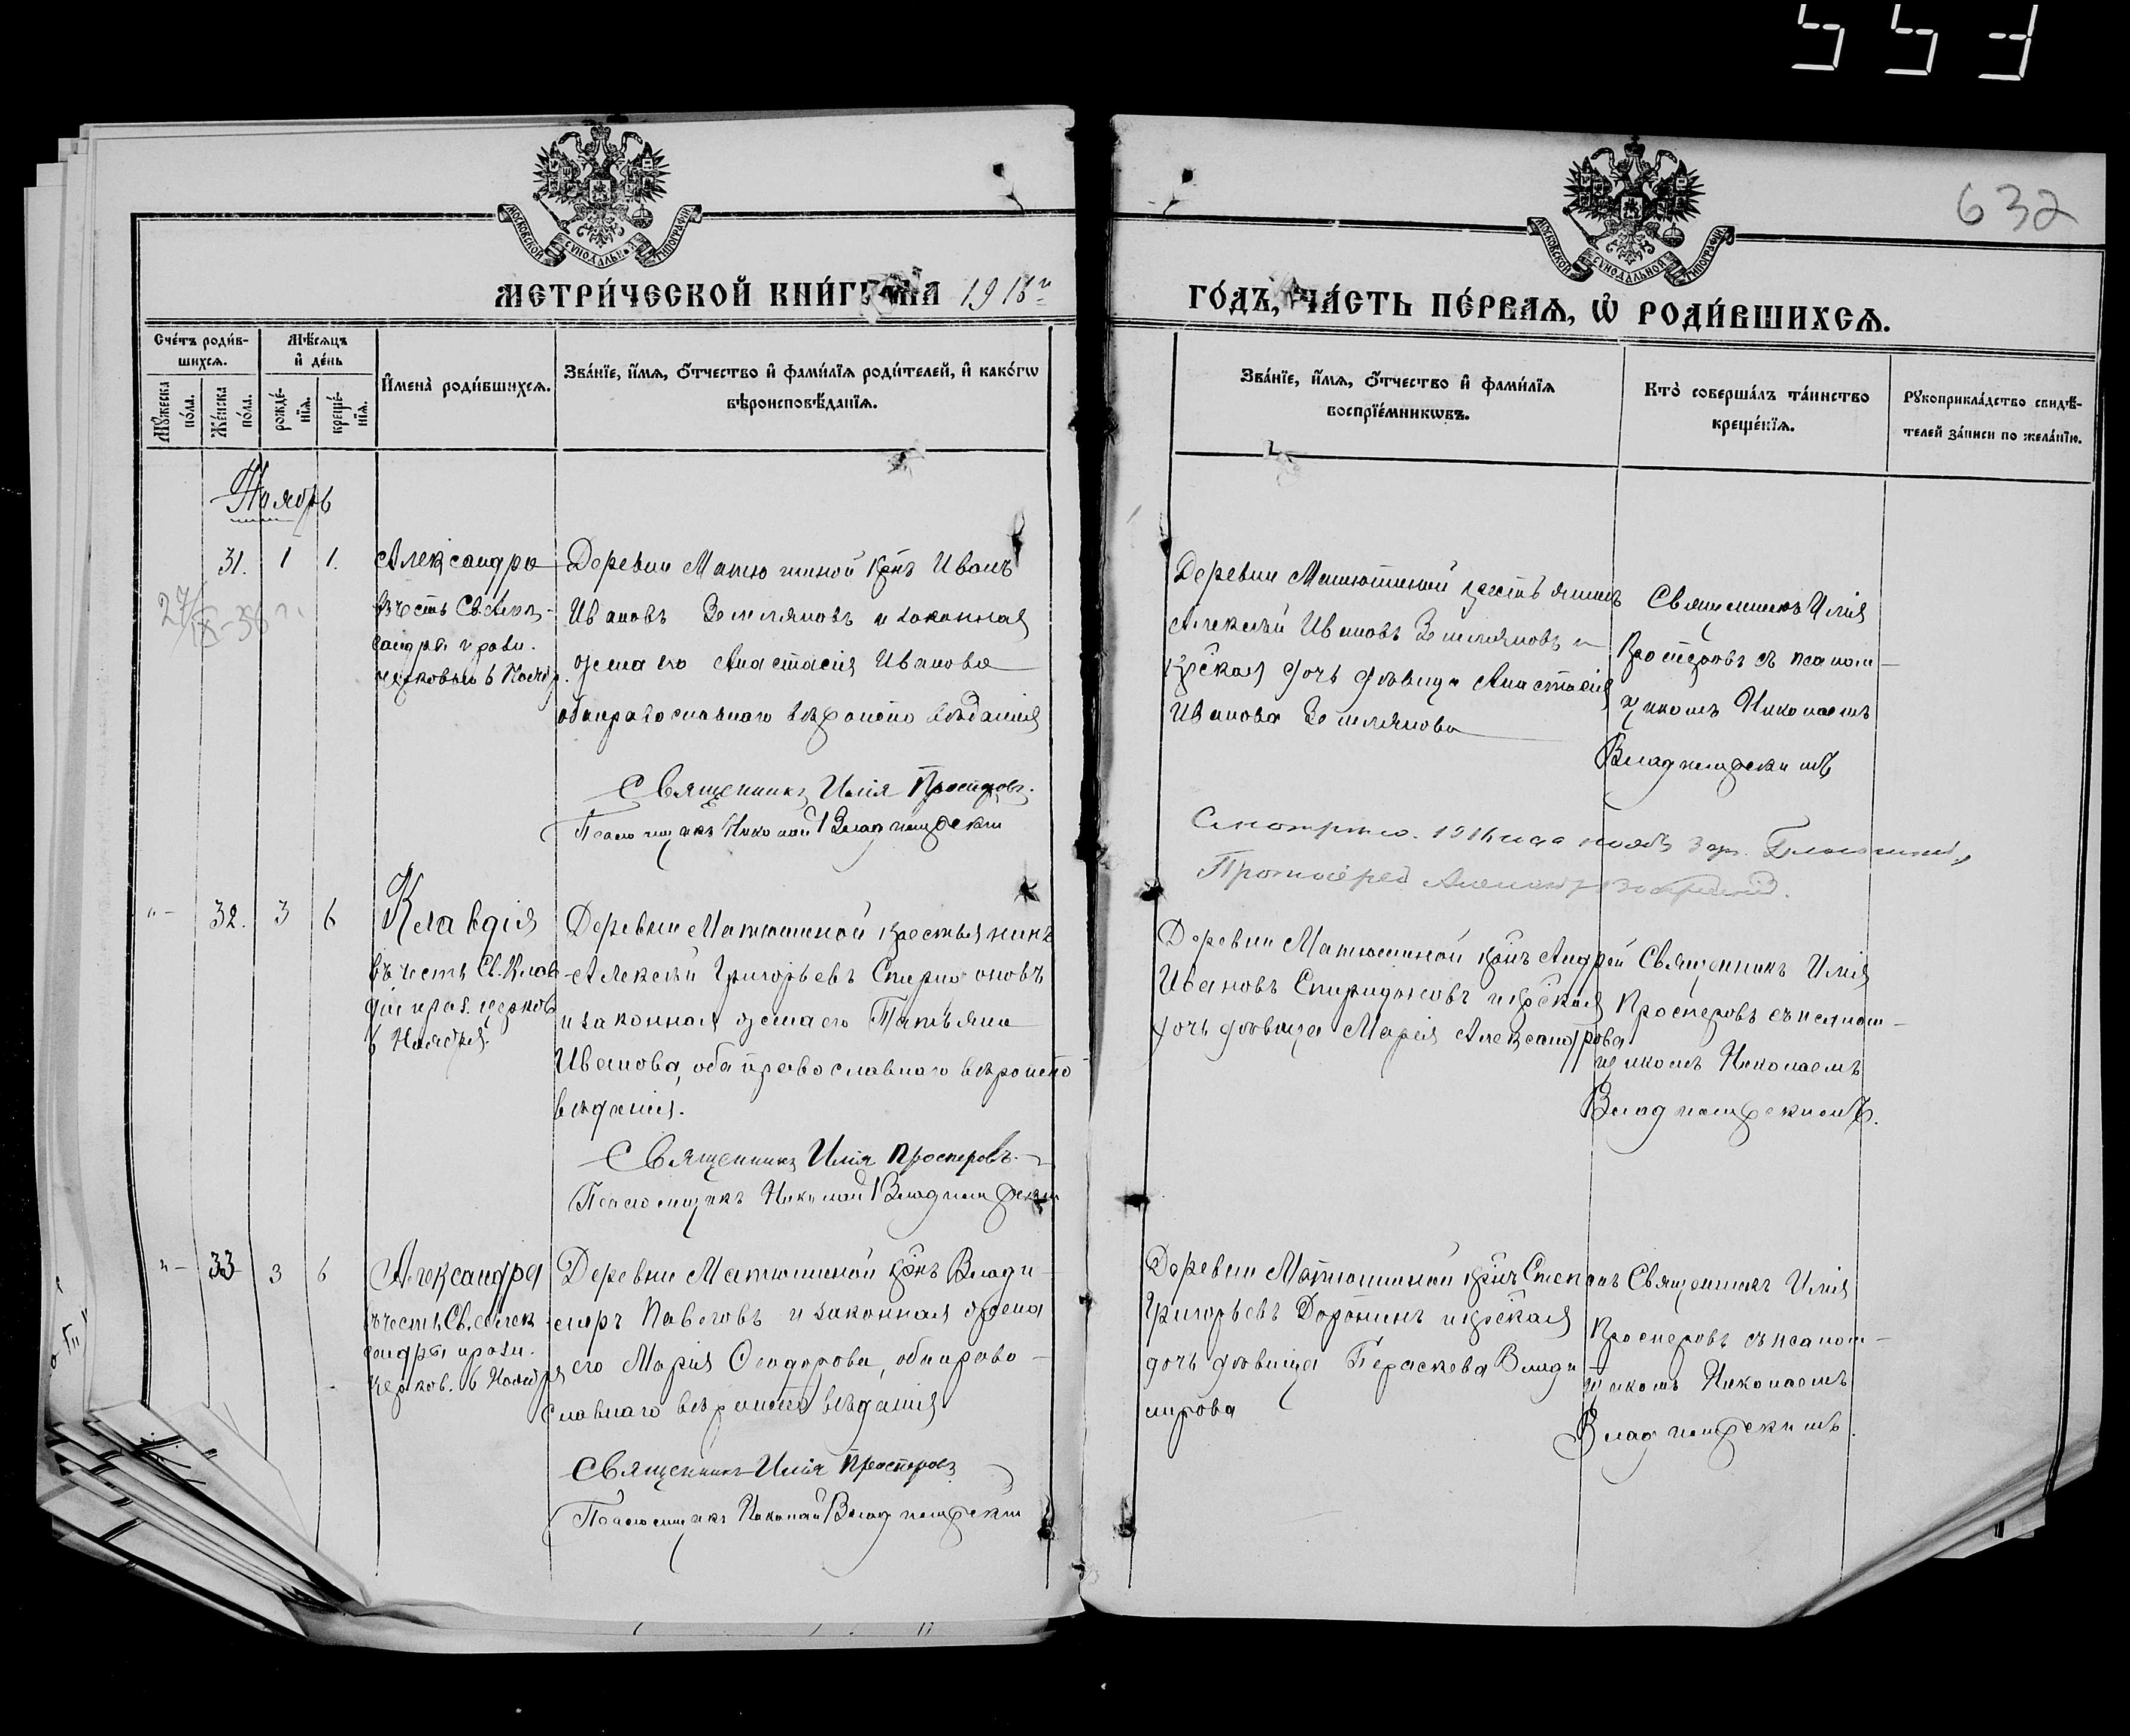 553
632
МОСКОВСКОЙ СУНОДАЛЬНОЙ ТИПОГРАФІИ
МОСКОВСКОЙ СУНОДАЛЬНОЙ ТИПОГРАФІИ
МЕТРИ́ЧЕСКОЙ КНИ́ГИ НА 191
ГО́ДЪ, ЧА́СТЬ ПЕ́РВАѦ, Ѡ҆ РОДИ́ВШИХСѦ.
Счéтъ роди́в-
шихсѧ.
Мѣ́сѧцъ
и҆ де́нь
Мꙋ́жеска
по́ла.
Же́нска
по́ла.
рожде́-
нїѧ.
креще́-
нїѧ.
И҆мена̀ роди́вшихсѧ.
Зва́нїе, и҆́мѧ, ѻ҆́тчество и҆ фами́лїѧ роди́телей, и҆ како́гѡ
вѣроисповѣ́данїѧ.
Зва́нїе, и҆́мѧ, ѻ҆́тчество и҆ фами́лїѧ
воспрїе́мникѡвъ.
Кто̀ соверша́лъ та́инство
креще́нїѧ.
Рꙋкоприкла́дство свидѣ́-
телей за́писи по жела́нїю.
Ноябрь
31. 1 1.
Александра
въ честь Св. Алек-
сандры празн.
церковью 6 Ноябр.
Деревни Матюшиной кр-нъ Иванъ
Ивановъ Землямовъ и законная
жена его Анастасія Иванова
оба православнаго вѣроисповѣданія
Священникъ Илія Просперовъ.
Псаломщикъ Николай Владимірскій
Деревни Матюшиной крестьянинъ
Алексѣй Ивановъ и
кр-ская дочь дѣвица Анастасія
Иванова
Священникъ Илія
Просперовъ съ псалом-
щикомъ Николаемъ
Владимірскимъ
Смотрѣлъ. 1916 года нояб. 3 дн. Благочинный
Протоіерей
"- 32. 3 6
Клавдія
въ честь Св. Клав
діи праз. церков
6 Ноября.
Деревни Матюшиной крестьянинъ
Алексѣй Григорьевъ Спиридоновъ
и законная жена его Татьяна
Иванова, оба православнаго вѣроиспо
вѣданія.
Священникъ Илія Просперовъ
Псаломщикъ Николай Владимірскій
Деревни Матюшиной кр-нъ Андрей
Ивановъ Спиридоновъ и кр-ская
дочь дѣвица Марія Александрова
Священникъ Илія
Просперовъ съ псалом-
щикомъ Николаемъ
Владимірскимъ.
"- 33 3 6
Александра
въ честь Св. Алек
сандры празн.
церков. 6 Ноября
Деревни Матюшиной кр-нъ Влади-
міръ Павловъ и законная жена
его Марія Ѳеодорова, оба право-
славнаго вѣроисповѣданія
Священникъ Илія Просперовъ
Псаломщикъ Николай Владимірскій
Деревни Матюшиной кр-нъ Степанъ
Григорьевъ Доронинъ и кр-ская
дочь дѣвица Параскева Влади
мірова
Священникъ Илія
Просперовъ съ псалом-
щикомъ Николаемъ
Владимірскимъ.